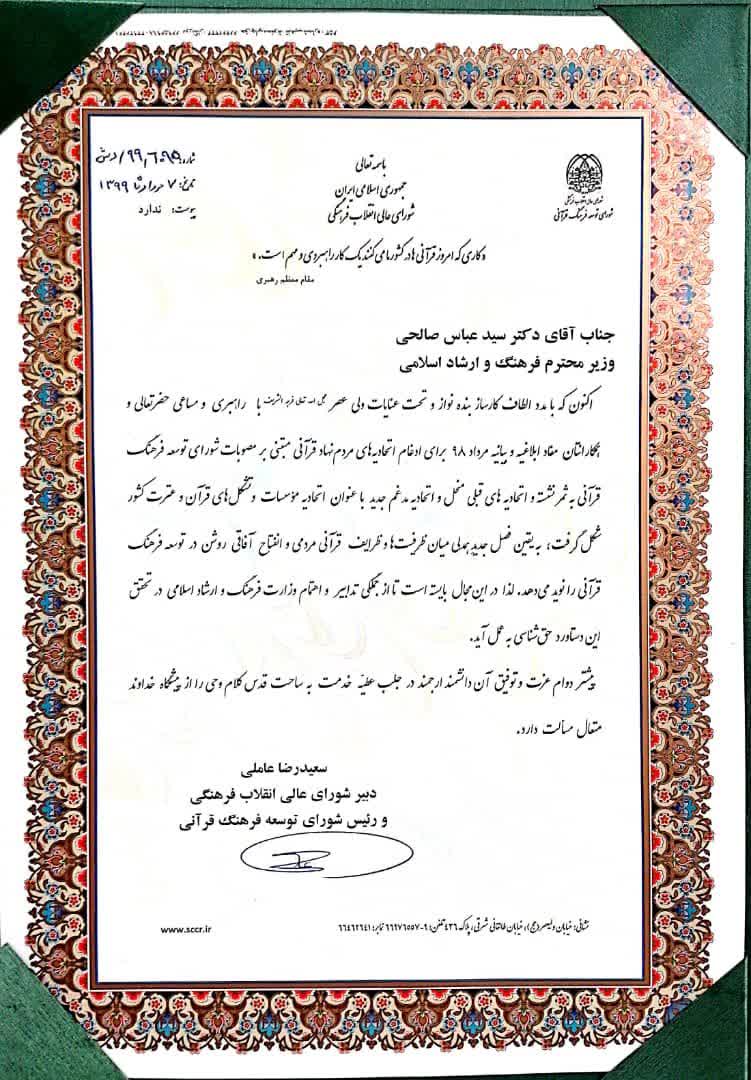 باسمه تعالی
جمهوری اسلامی ایران
شورای عالی انقلاب فرهنگی
شورای عالی انقلاب فرهنگی
شورای توسعه فرهنگ قرآنی
شماره:
تاریخ: ۷ مرداد ۱۳۹۹
پیوست: ندارد
«کاری که امروز قرآنی‌ها در کشور ما می کنند یک کار راهبردی و مهم است.»
مقام معظم رهبری
جناب آقای دکتر سید عباس صالحی
وزیر محترم فرهنگ و ارشاد اسلامی
اکنون که با مدد الطاف کارساز بنده نواز و تحت عنایات ولی عصر عجل الله تعالی فرجه الشریف با راهبری و مساعی حضرتعالی و
همکارانتان مفاد ابلاغیه و بیانیه مرداد ۹۸ برای ادغام اتحادیه‌های مردم نهاد قرآنی مبتنی بر مصوبات شورای توسعه فرهنگ
قرآنی به ثمر نشسته و اتحادیه های قبلی منحل و اتحادیه مدغم جدید با عنوان اتحادیه مؤسسات و تشکل‌های قرآن و عترت کشور
شکل گرفت؛ به یقین فصل جدید همدلی میان ظرفیت‌ها و ظرایف قرآنی مردمی و انفتاح آفاقی روشن در توسعه فرهنگ
قرآنی را نوید می‌دهد. لذا در این مجال بایسته است تا از جملگی تدابیر و اهتمام وزارت فرهنگ و ارشاد اسلامی در تحقق
این دستاورد حق شناسی به عمل آید.
پیشتر دوام عزت و توفیق آن دانشمند ارجمند در جلب عطیّه خدمت به ساحت قدس کلام وحی را از پیشگاه خداوند
متعال مسألت دارد.
سعیدرضا عاملی
دبیر شورای عالی انقلاب فرهنگی
و رئیس شورای توسعه فرهنگ قرآنی
نشانی: خیابان ولیعصر(عج)، خیابان طالقانی شرقی، پلاک ۴۳۶ تلفن: ۹-۶۶۹۷۶۵۵۷ نمابر: ۶۶۴۶۲۶۴۱
www.sccr.ir